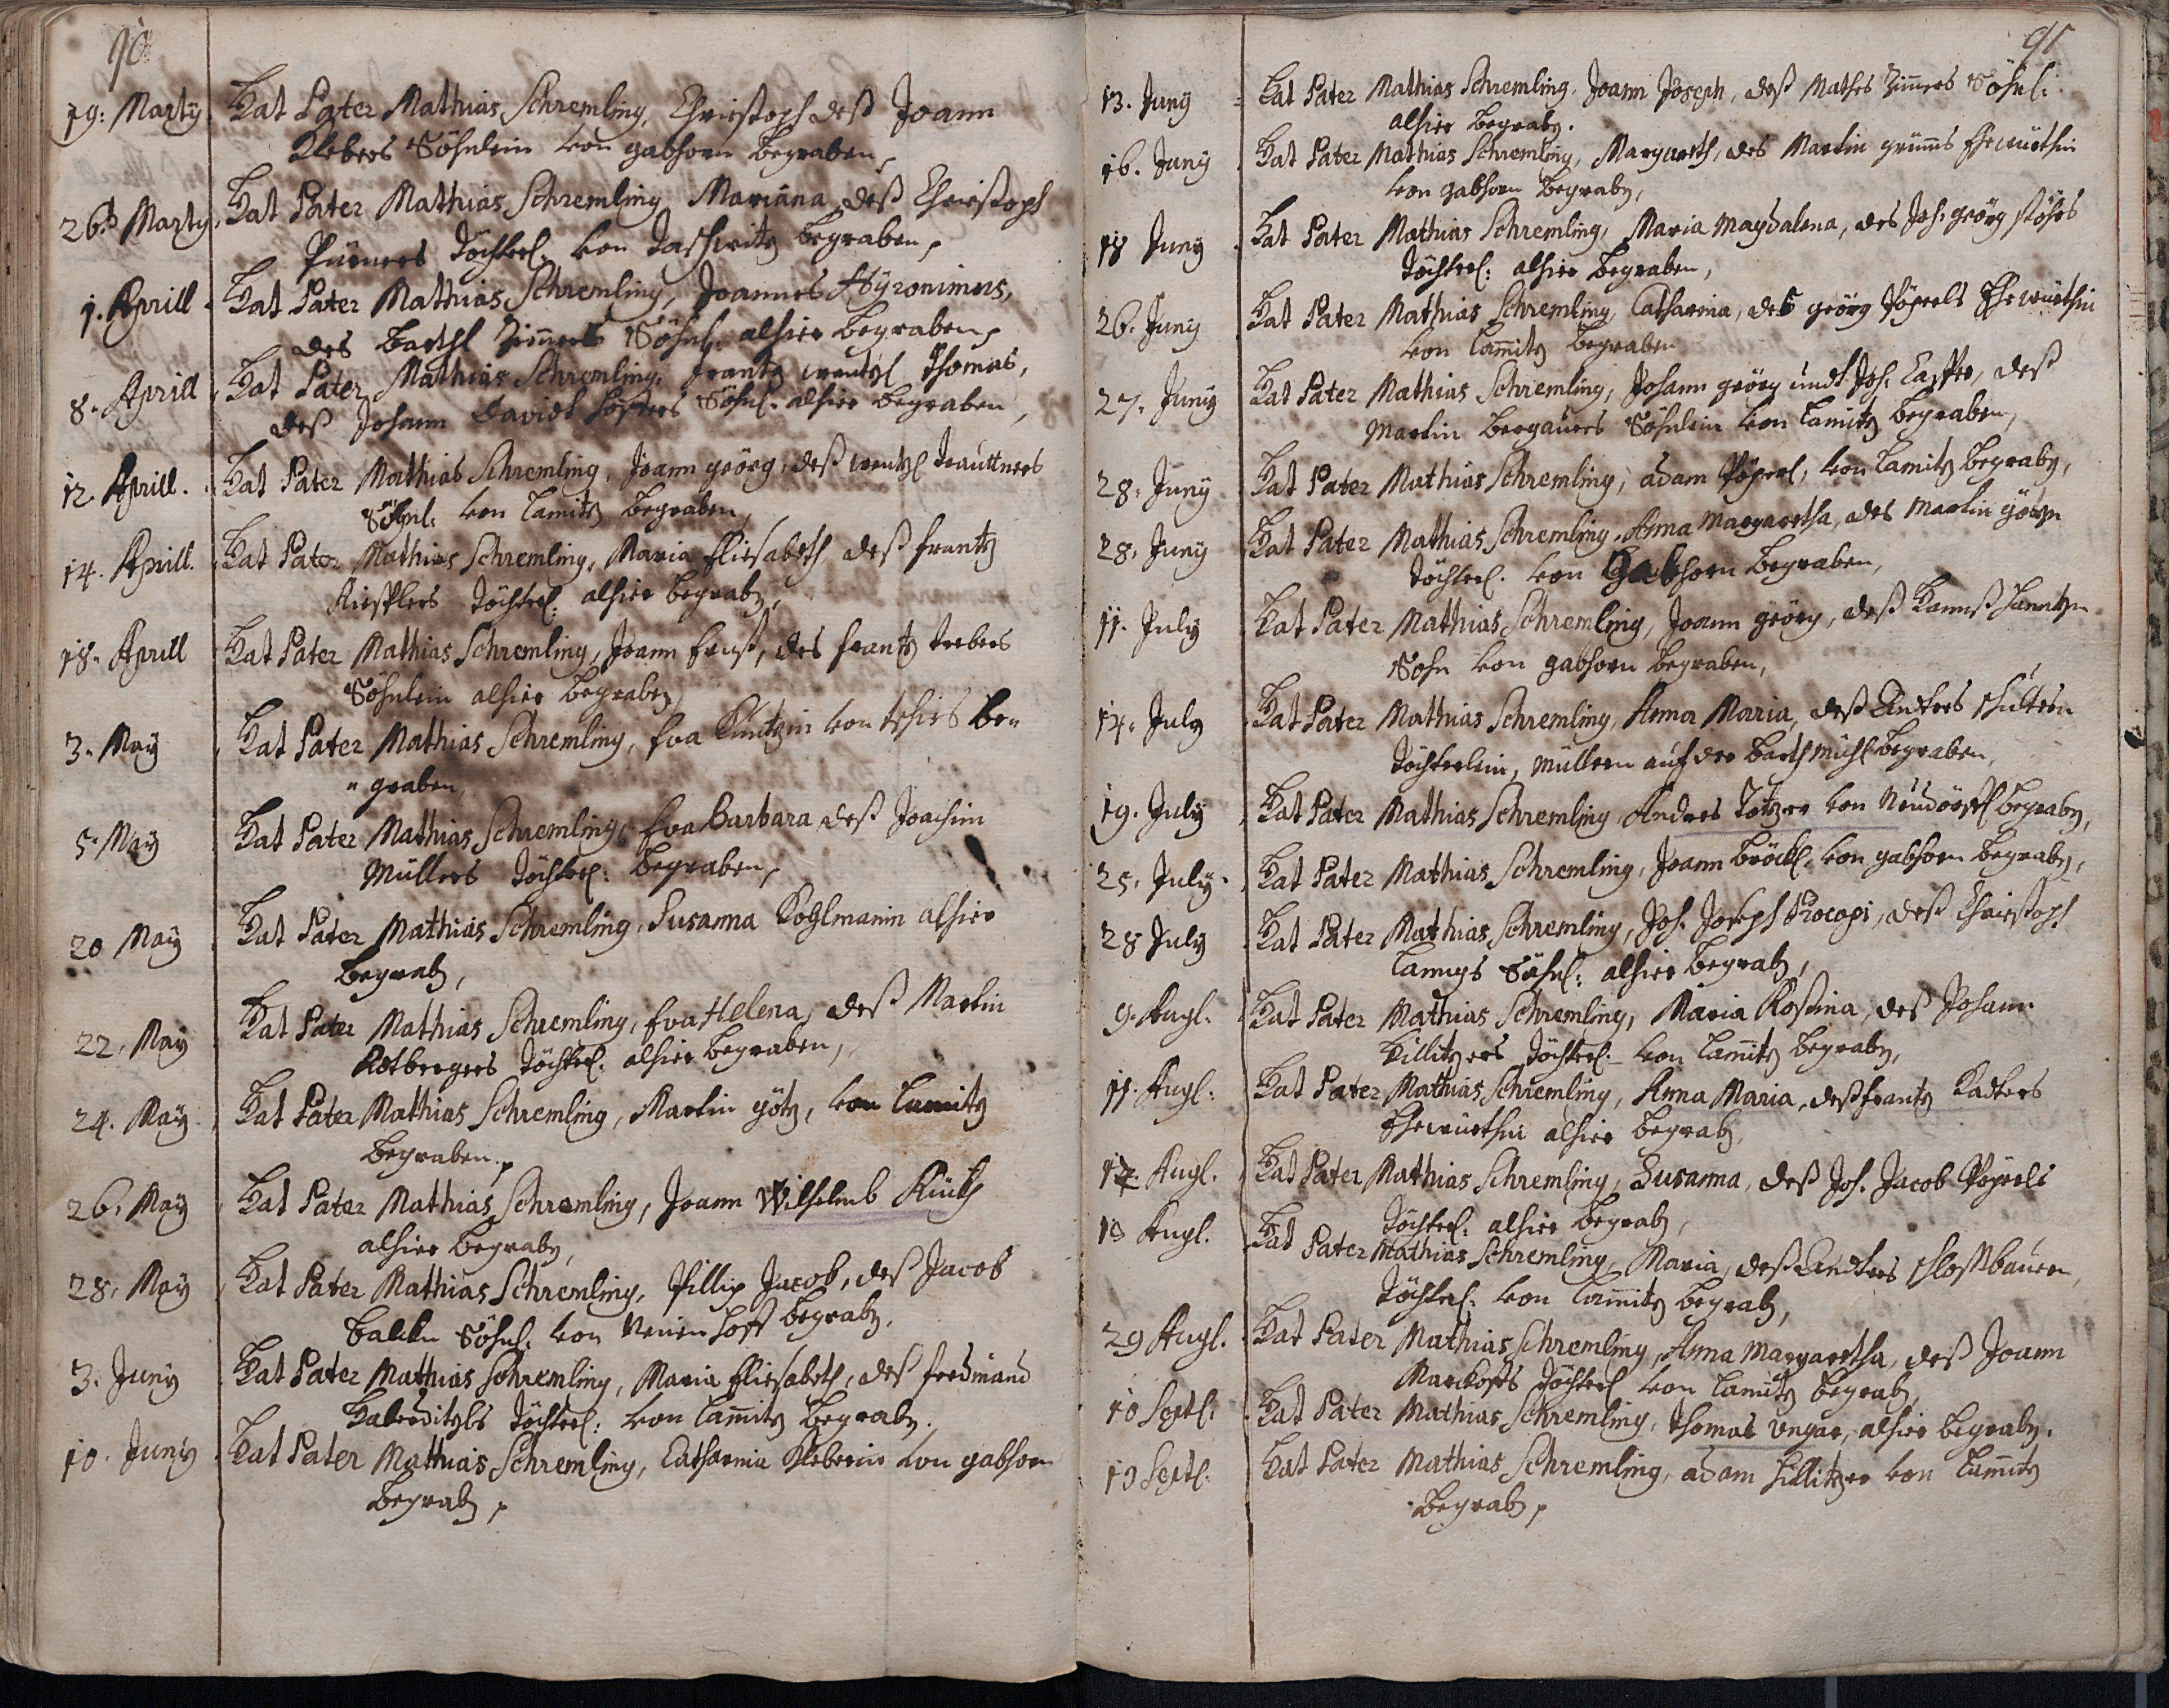 90
19: Marty Hat Pater Mathias Schremling, Christoph deß Joann
Klebers Söhnlein von gabhorn begraben,
26. Marty Hat Pater Mathias Schremling, Mariana, deß Christoph
Pürners Töchterl: von Taschwitz begraben,
1. Aprill Hat Pater Mathias Schremling, Joannes Hyronimus,
des Barthl Zimers Söhnl: alhier begraben,
8. Aprill Hat Pater Mathias Schremling, Frantz wentzl Thomas,
deß Johann Davidt Söhnl: alhier begraben,
12. Aprill. Hat Pater Mathias Schremling, Joann geörg, deß wentzl Trauttners
Söhnl: von Lamitz begraben,
14. Aprill. Hat Pater Mathias Schremling, Maria Eliesabeth deß frantz
Töchterl: alhier begrabn,
18. Aprill Hat Pater Mathias Schremling, Joann Ernst, des frantz trebers
Söhnlein alhier begraben,
3. May Hat Pater Mathias Schremling, Eva Küntzin von be„
„graben,
5. May Hat Pater Mathias Schremling, Eva Barbara, deß Joachim
Müllers Töchterl: begraben,
20 May Hat Pater Mathias Schremling, Susanna Koglmanin alhier
begrabn,
22. May Hat Pater Mathias Schremling, Eva Helena, deß Martin
Rotbergers Töchterl: alhier begraben,
24. May Hat Pater Mathias Schremling, Martin götz, von Lamitz
begraben,
26. May Hat Pater Mathias Schremling, Joann Wilhelmb Küth
alhier begrabn,
28. May Hat Pater Mathias Schremling, Phillip Jacob, deß Jacob
Söhnl: von Neuen Hoff begrabn,
3. Juny Hat Pater Mathias Schremling, Maria Eliesabeth, deß ferdinand
Haberditzls Töchterl: von Lamitz begrabn.
10. Juny Hat Pater Mathias Schremling, Catharina Kleberin von gabhorn
begrabn,
91
13. Juny Hat Pater Mathias Schremling, Joann Joseph, deß Mathes Zimers Söhnl:
alhier begrabn.
16. Juny Hat Pater Mathias Schremling, Margareth, des Martin grimms Ehewürthin
von gabhorn begrabn,
18 Juny Hat Pater Mathias Schremling, Maria Magdalena, des Joh: geörg Stöhrs
Töchterl: alhier begraben,
26. Juny Hat Pater Mathias Schremling, Catharina, des geörg Pöperls Ehewürthin
von Lamitz begraben
27. Juny Hat Pater Mathias Schremling, Johann geörg undt Joh: Casper, deß
Martin Bergauers Söhnlein von Lamitz begraben,
28. Juny Hat Pater Mathias Schremling, adam Pöperl, von Lamitz begrabn,
28. Juny Hat Pater Mathias Schremling, Anna Margaretha, des Martin götzn
Töchterl: von Gabhorn begraben,
11. July Hat Pater Mathias Schremling, Joann geörg, deß Hannß
Sohn von gabhorn begraben,
14. July Hat Pater Mathias Schremling, Anna Maria, deß Andres
Töchterlein, Müllern auf der Barthmühl begraben,
19. July Hat Pater Mathias Schremling, Andres Totzer von Neudörffl begrabn,
25. July Hat Pater Mathias Schremling, Joann Bröckl, von gabhorn begrabn,
28 July Hat Pater Mathias Schremling, Joh: Joseph Procopi, deß Christoph
Langs Söhnl: alhier begrabn,
9. Augl. Hat Pater Mathias Schremling, Maria Rosina, deß Johann
Hillitzers Töchterl: von Lamitz begrabn,
11. Augl: Hat Pater Mathias Schremling, Anna Maria, deß frantz Kadters
Ehewürthin alhier begrabn,
12. Augl. Hat Pater Mathias Schremling, Susanna, deß Joh: Jacob Pöperls
Töchterl: alhier begrabn,
13 Augl. Hat Pater Mathias Schremling, Maria, deß Andres schloßbauern,
Töchterl: von Lamitz begrabn,
29 Augl. Hat Pater Mathias Schremling, Anna Margaretha, deß Joann
Töchterl von Lamitz begrabn,
10 Septl: Hat Pater Mathias Schremling, Thomas Ungar, alhier begrabn.
13 Septl. Hat Pater Mathias Schremling, adam Hillitzer von Lamitz
begrabn,